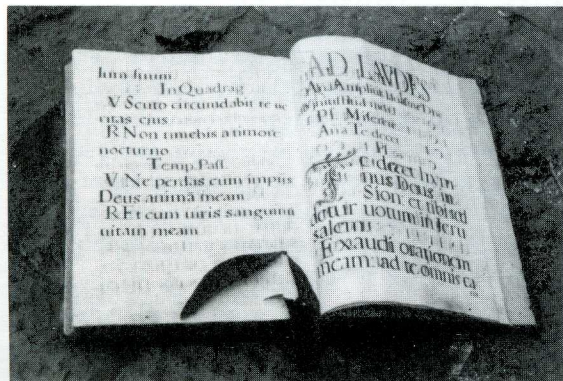 In Quadrag
V Scuto circumdabit te ue
ritas eius
R Non timebis a timore
nocturno
Temp. Pass.
V Ne perdas cum impiis
Deus animā meam
R Et cum uiris sanguinū
uitam meam
AD LAVDES
Ana Amplius
Ps. Miserere
Ana Te decet
Ps
Te decet hym
nus Deus in
Sion et tibi red
detur uotum in Ieru
salem
Exaudi orationem
meam ad te omnis ca